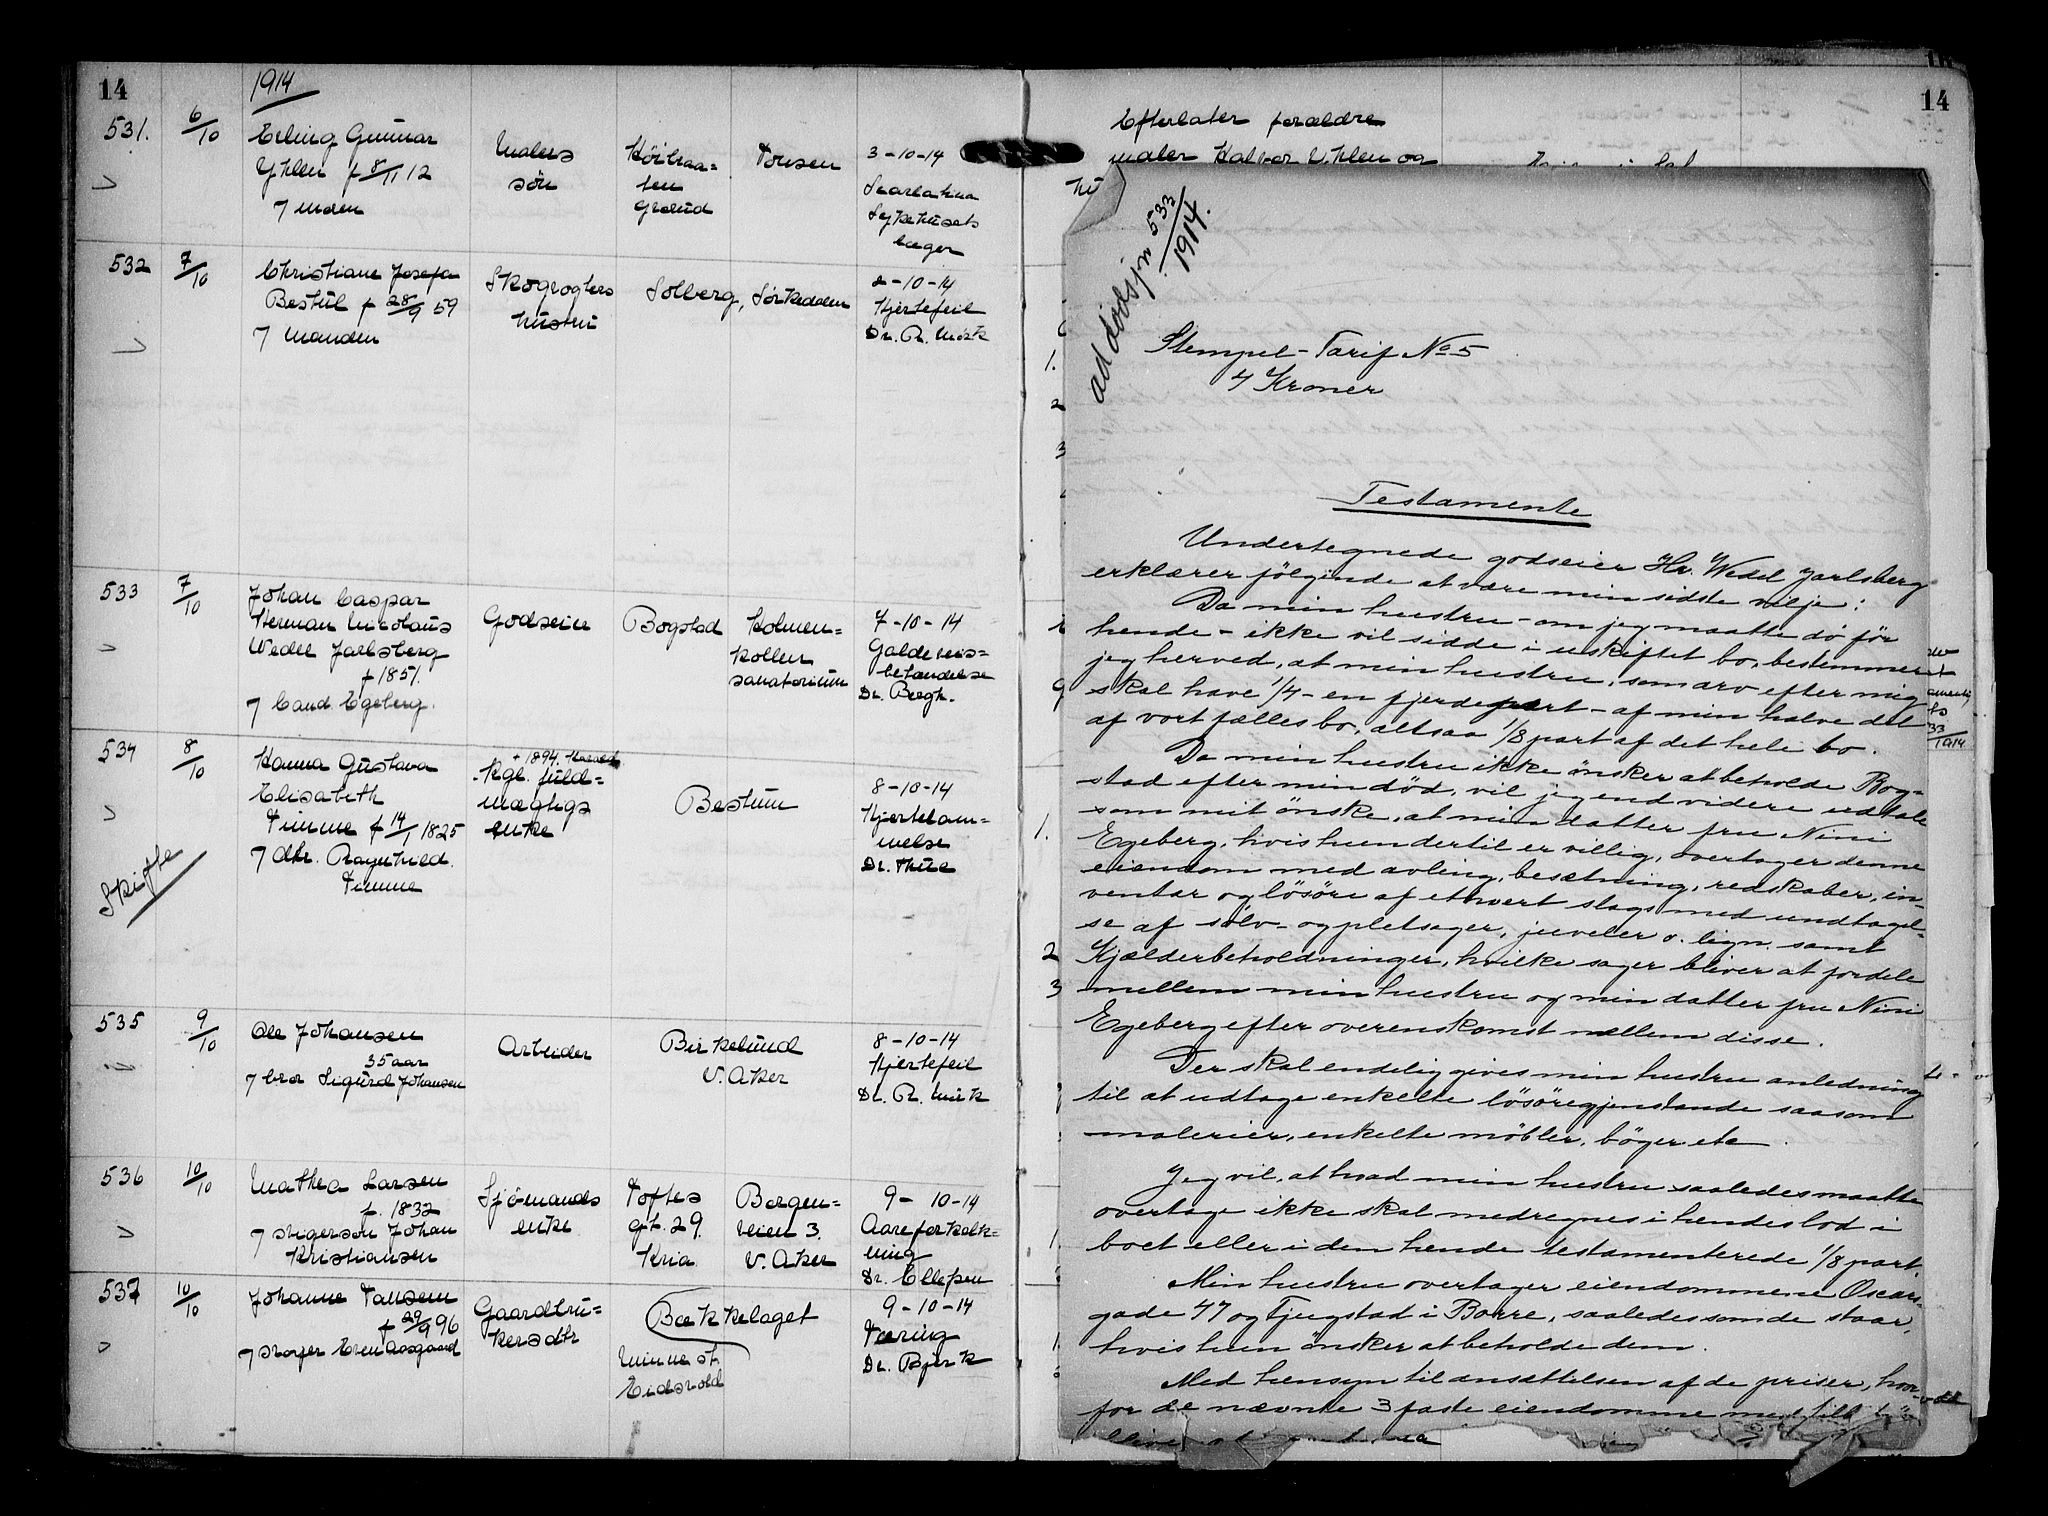 14
1914
531.
6/10
Erling Gunnar
Uhlen f 8/11 12
7 moren
Malers
søn
Grorud
Tonsen
3-10-14
Scarlatina
Sykehusets
læger
532
7/10
Christiane Josefa
Bestul f 28/9 59
7 manden
Skogvogters
hustru
Solberg, Sørkedalen
2-10-14
Hjertefeil
Dr. R. Mørk
533
7/10
Johan Caspar
Herman Nicolaus
Wedel Jarlsberg
f 1851.
7 Cand. Egeberg.
Godseier
Bogstad
Holmen=
kollen
sanatorium
7-10-14
Galdeveis=
betændelse
Dr. Bergh.
534
8/10
Hanna Gustava
Elisabeth
Timme f 14/1 1825
7 dtr. Ragnhild
Timme
Skifte
+ 1894. Harald
Kgl. fuld=
mægtigs
enke
Bestum
8-10-14
Hjertelam=
melse
Dr. Thue
535
9/10
Ole Johansen
35 aar
7 bror Sigurd Johansen
Arbeider
Birkelund
V. Aker
8-10-14
Hjertefeil
Dr. R. Mørk
536
10/10
Mathea Larsen
f. 1832
7 svigersøn Johan
Kristiansen
Sjømands
enke
Toftes
gt. 29.
Kria
Bergen=
veien 3.
V. Aker
9-10-14
Aareforkalk=
ning
Dr. Ellefsen
537
10/10
Johanne Tansem
f 29/9 96
7 svoger Even Aasgaard
Gaardbru=
kersdtr
Bækkelaget
Minne st.
Eidsvold
9-10-14
Tæring
Dr. Bjerk
14
Efterlater forældre
maler Halvor Uhlen og
ad dødsfn 533/1914.
Stempel-Tarif No 5
4 Kroner
Testamente
Undertegnede godseier Hr. Wedel Jarlsberg
erklærer følgende at være min sidste vilje:
Da min hustru - om jeg maatte dø før
hende - ikke vil sidde i uskiftet bo, bestemmer
jeg herved, at min hustru, som arv efter mig
skal have 1/4 - en fjerdepart - af min halve del
af vort fællesbo, altsaa 1/8 part af det hele bo.
Da min hustru ikke ønsker at beholde Bog-
stad efter min død, vil jeg end videre udtale
som mit ønske, at min datter fru Nini
Egeberg, hvis hun dertil er villig, overtager denne
eiendom med avling, besætning, redskaber, in-
ventar og løsøre af ethvert slags med undtagel-
se af sølv- og pletsager, juveler o. lign. samt
Kjælderbeholdninger, hvilke sager bliver at fordele
mellem min hustru og min datter fru Nini
Egeberg efter overenskomst mellem disse.
Der skal endelig gives min hustru anledning
til at udtage enkelte løsøregjenstande saasom
malerier, enkelte møbler, bøger etc.
Jeg vil, at hvad min hustru saaledes maatte
overtage ikke skal medregnes i hendes lod i
boet eller i den hende testamenterede 1/8 part.
Min hustru overtager eiendommene Oscars-
gade 47 og Fjugstad i Borre, saaledes som de staar,
hvis hun ønsker at beholde dem.
Med hensyn til ansættelsen af de priser, hvor-
for de nævnte 3 faste eiendomme med tilb